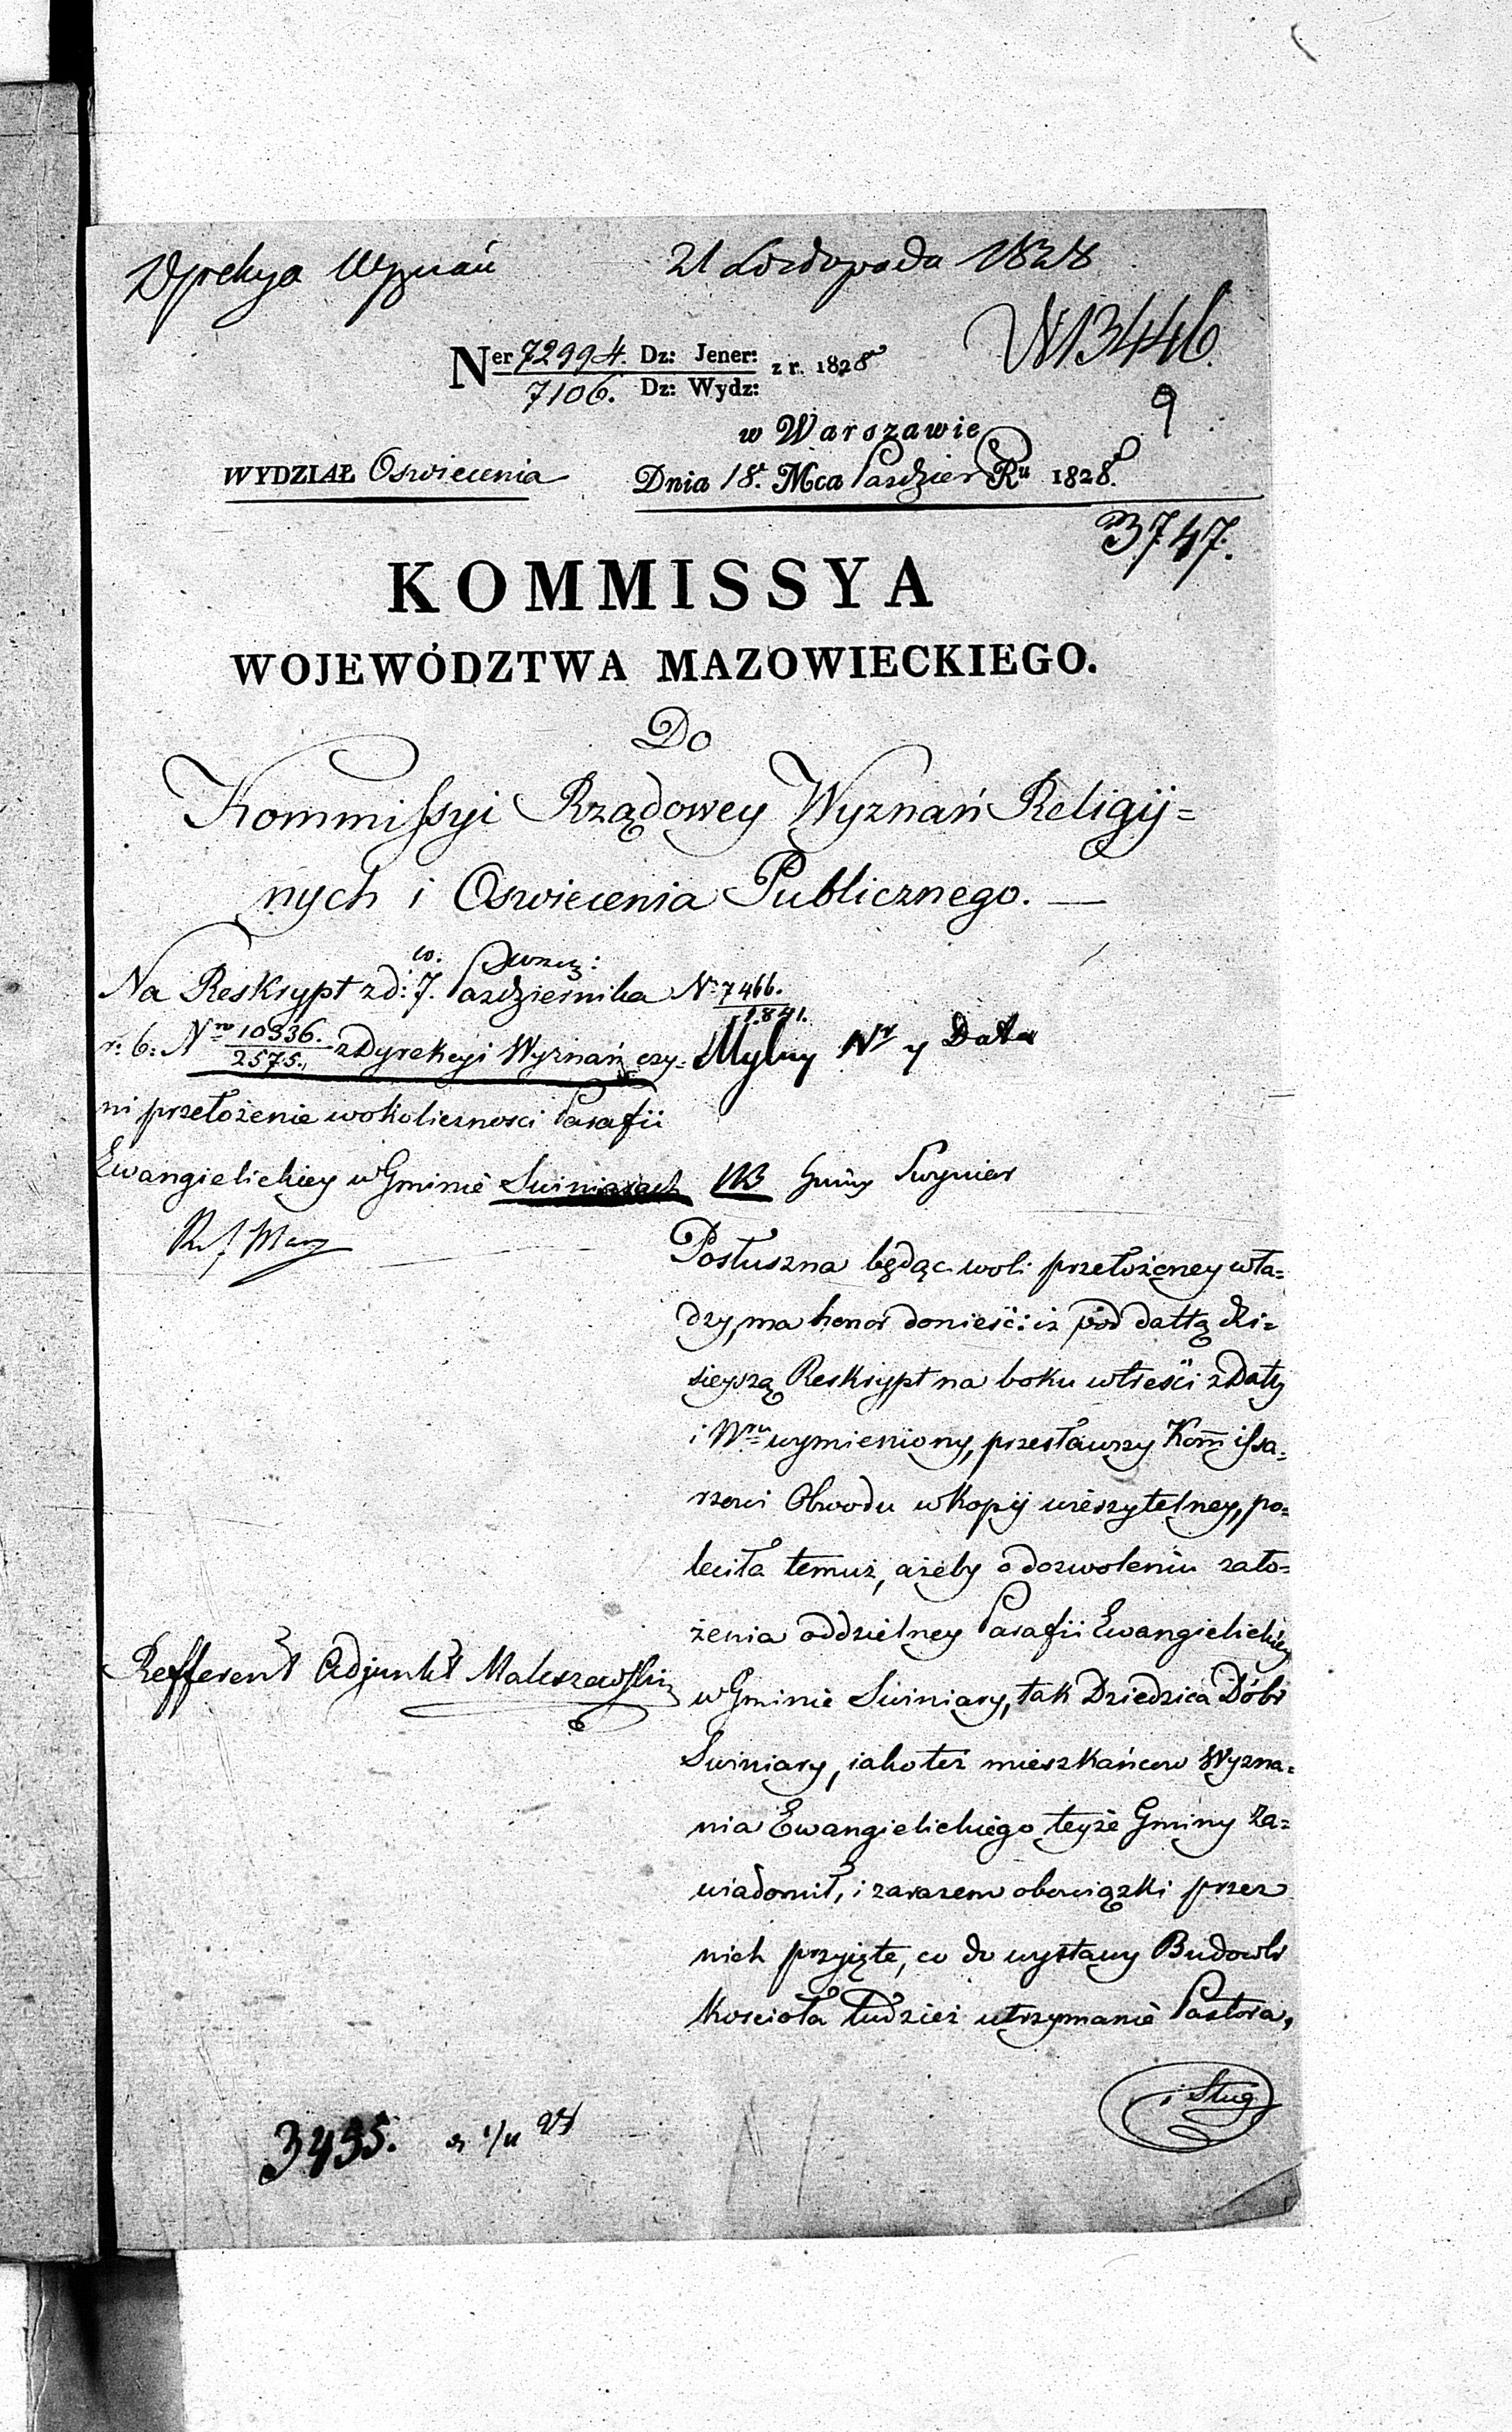 Dyrekcya Wyznań 21 Listopada 1828
N13446.
Ner 72994. Dz: Jener: z r. 1828
7106. Dz: Wydz:
9
w Warszawie
WYDZIAŁ Oswiecenia Dnia 18. Mca Pazdzier Ru 1828.
3747.
KOMMISSYA
WOJEWÓDZTWA MAZOWIECKIEGO.
Do
Kommissyi Rządowey Wyznań Religij=
nych i Oswiecenia Publicznego. —
Na Reskrypt z d: 7. Pazdziernika N. 7466.
1.841.
r: b: Nro 10336. z Dyrekcyi Wyznań czy= Mylny Nr y Data
2575.
ni przełożenie w okoliczności Parafii
Ewangielickiey w Gminie Swiniarach NB Gminy
Posłuszna będąc woli przełożoney wła=
dzy, ma honor donieść: iż pod dattą dzi=
sieyszą Reskrypt na boku w treści z Daty
i Nru wymieniony, przesławszy Kommissa=
rzowi Obwodu w Kopij wierzytelney, po=
leciła temuż, ażeby o dozwoleniu zało=
żenia oddzielney Parafii Ewangielickiey
Refferent Adjunkt Maleszewski
w Gminie Swiniary, tak Dziedzica Dóbr
Swiniary, iako też mieszkańcow Wyzna=
nia Ewangielickiego teyże Gminy za=
wiadomił, i zarazem obowiązki przez
nich przyięte, co do wystawy Budowli
Kościoła tudzież utrzymanie Pastora,
i Sług
3495.